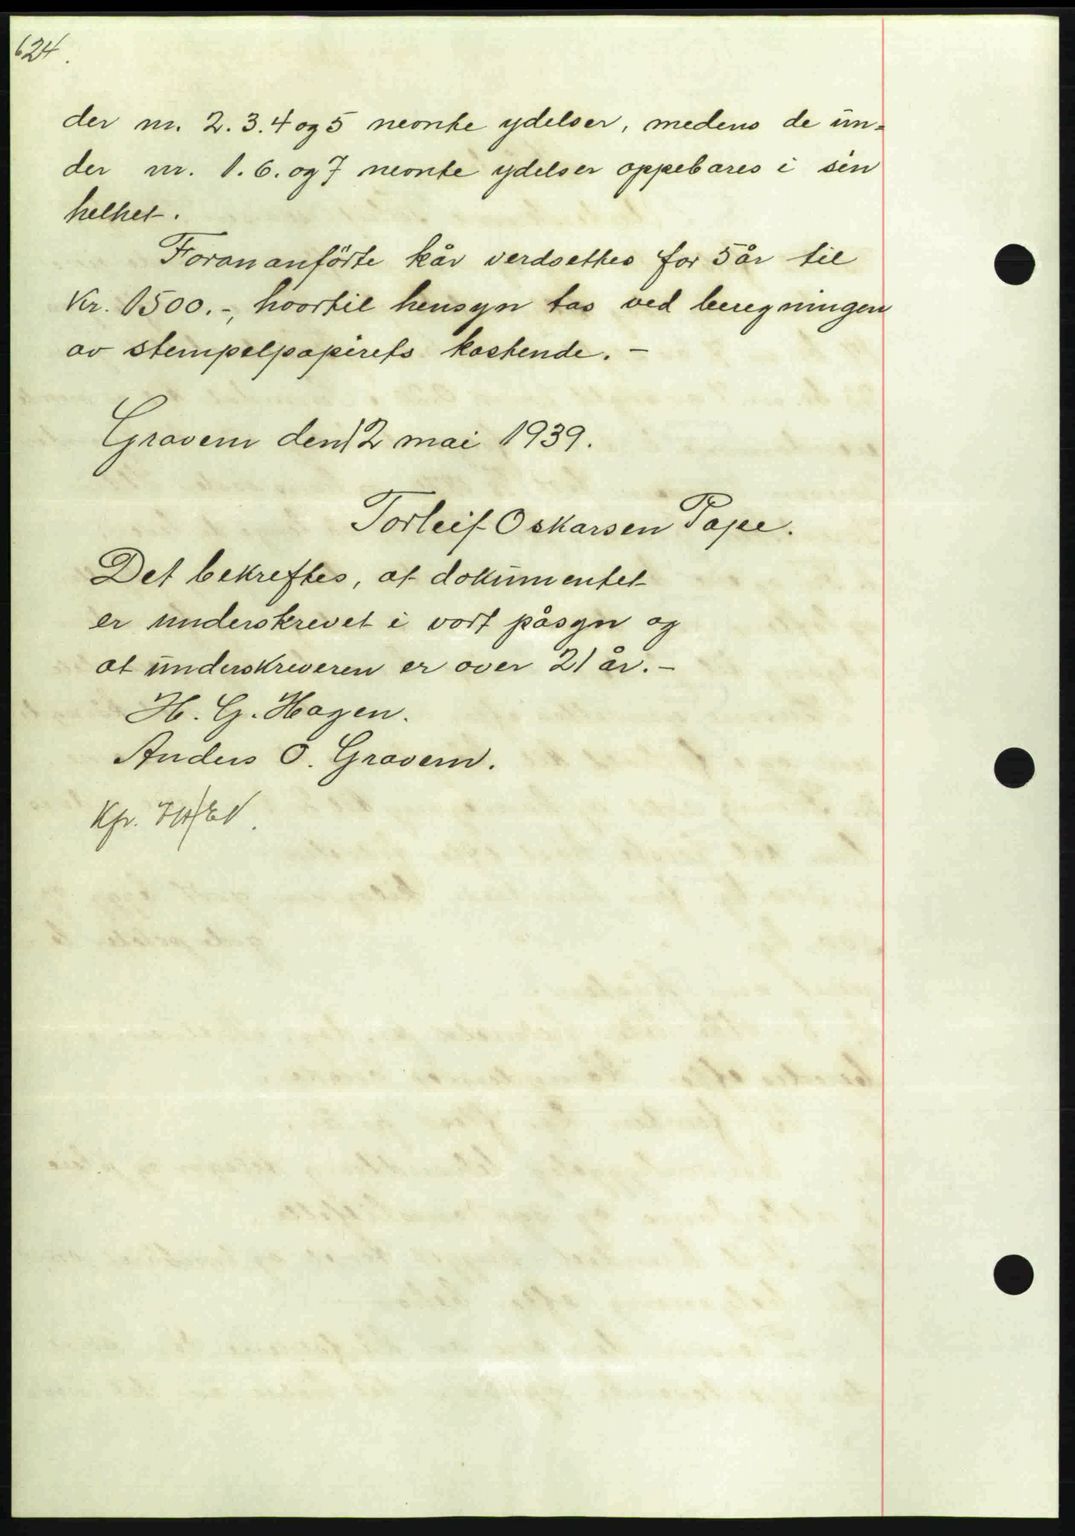 624.
der nr. 2. 3. 4 og 5 nevnte ydelser, medens de un-
der nr. 1. 6. og 7 nevnte ydelser oppebares i sin
helhet.
Forananförte kår verdsettes for 5 år til
Kr. 1500.-, hvortil hensyn tas ved beregningen
av stempelpapirets kostende. -
Gravem den 12 mai 1939.
Torleif Oskarsen Pape.
Det bekreftes, at dokumentet
er underskrevet i vort påsyn og
at underskriveren er over 21 år. -
H. G. Hagen.
Anders O. Gravem.
Kfr.